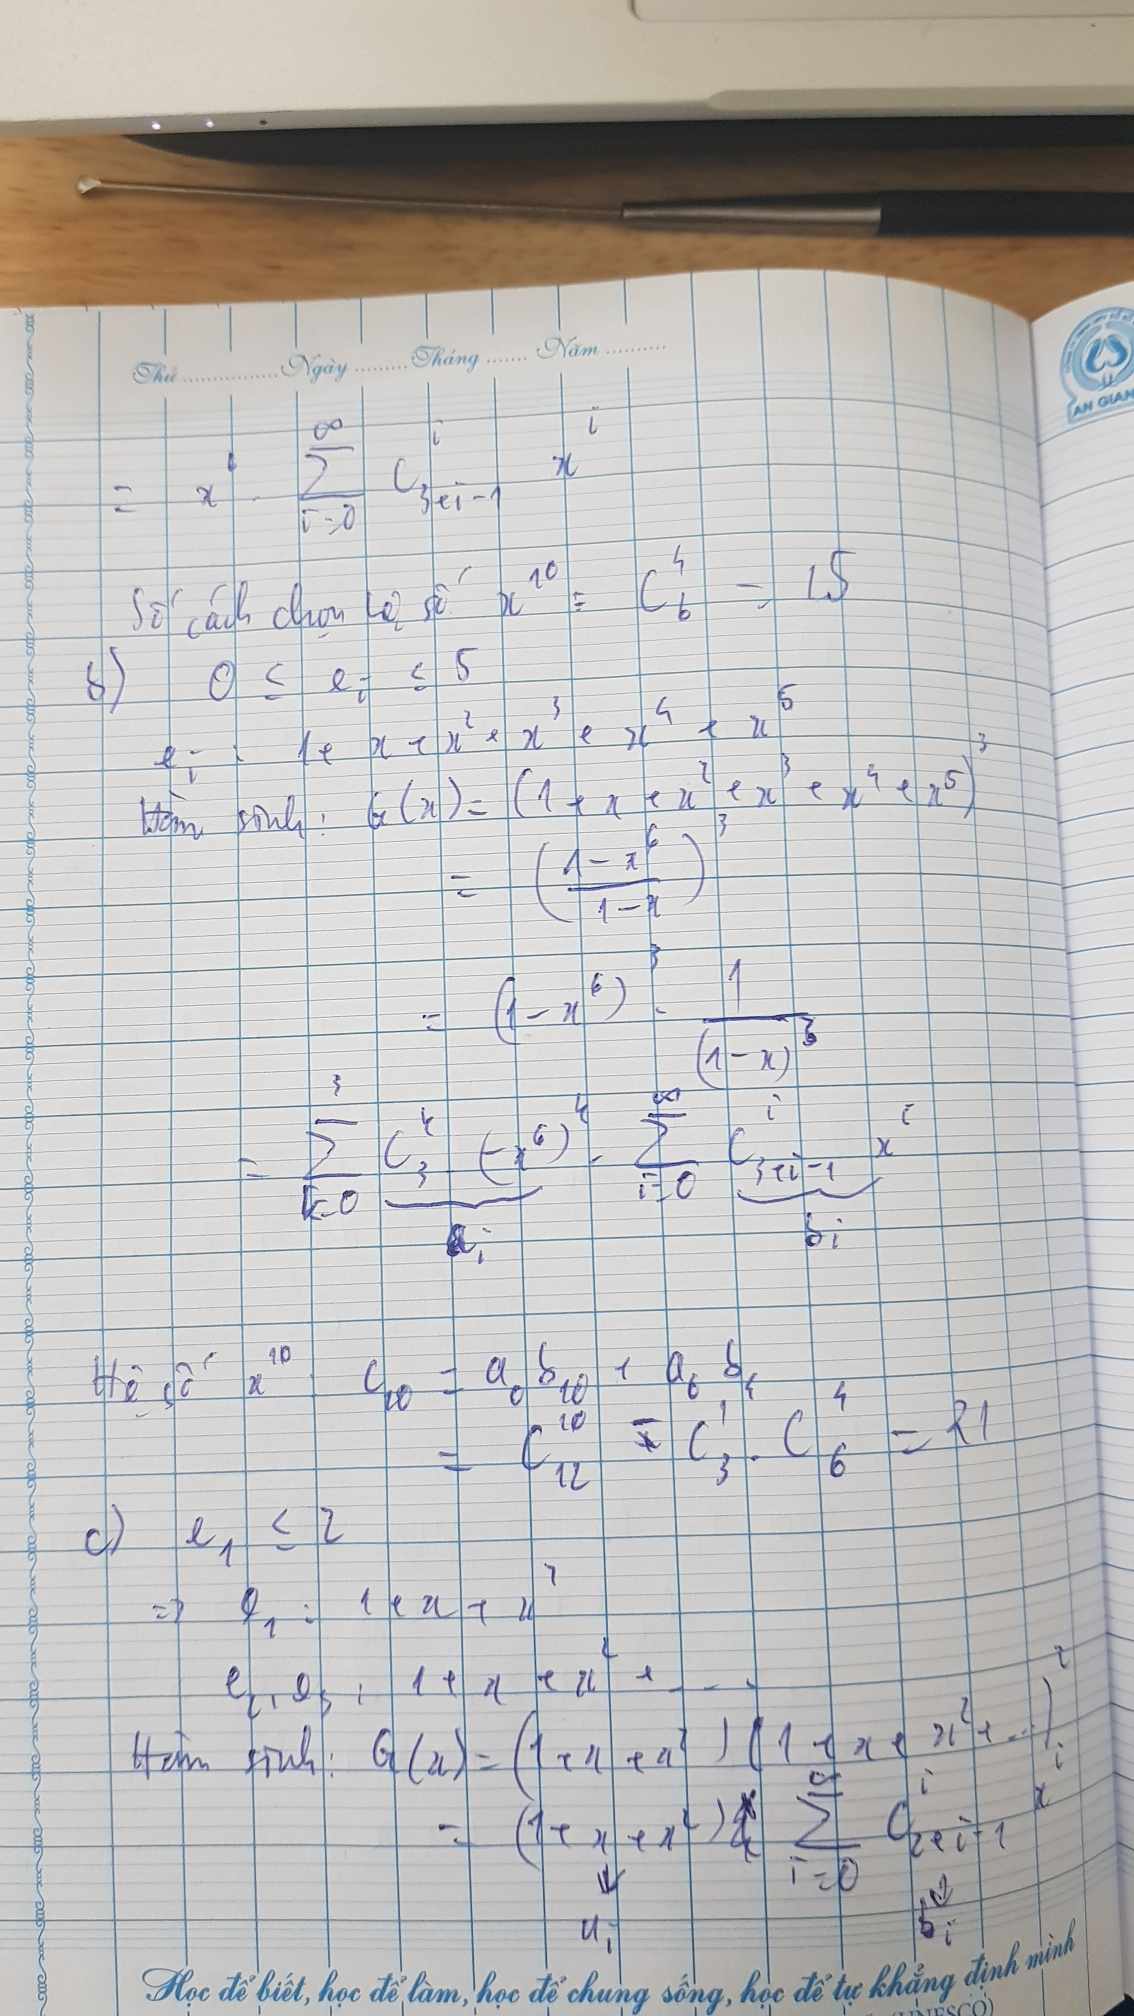 Thứ ................ Ngày ......... Tháng ....... Năm ..........
AN GIAN
= x . ∑_{i=0}^{∞} C_{3+i-1}^{i} x^{i}
Số cách chọn là số x^{10} = C_{6}^{4} = 15
b) 0 ≤ e_i ≤ 5
e_i : 1 + x + x^2 + x^3 + x^4 + x^5
Hàm sinh: G(x) = (1 + x + x^2 + x^3 + x^4 + x^5)^3
= ((1 - x^6)/(1 - x))^3
= (1 - x^6)^3 . 1/(1 - x)^3
= ∑_{k=0}^{3} C_3^k (-x^6)^k . ∑_{i=0}^{∞} C_{3+i-1}^{i} x^i
a_i b_i
Hệ số x^{10} c_{10} = a_0 b_{10} + a_6 b_4
= C_{12}^{10} - C_3^1 . C_6^4 = 21
c) e_1 ≤ 2
⇒ e_1 : 1 + x + x^2
e_2, e_3 : 1 + x + x^2 + ...
Hàm sinh: G(x) = (1 + x + x^2)(1 + x + x^2 + ...)^2
= (1 + x + x^2) ∑_{i=0}^{∞} C_{2+i-1}^{i} x^i
a_i b_i
Học để biết, học để làm, học để chung sống, học để tự khẳng định mình
(UNESCO)